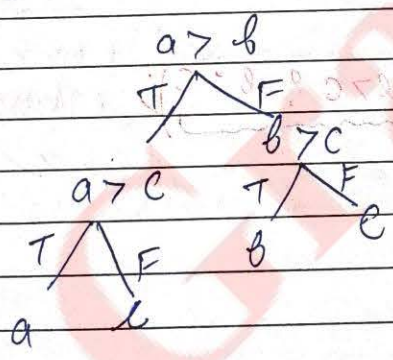 a > b
T F
b > c
a > c T F
T F b c
a c